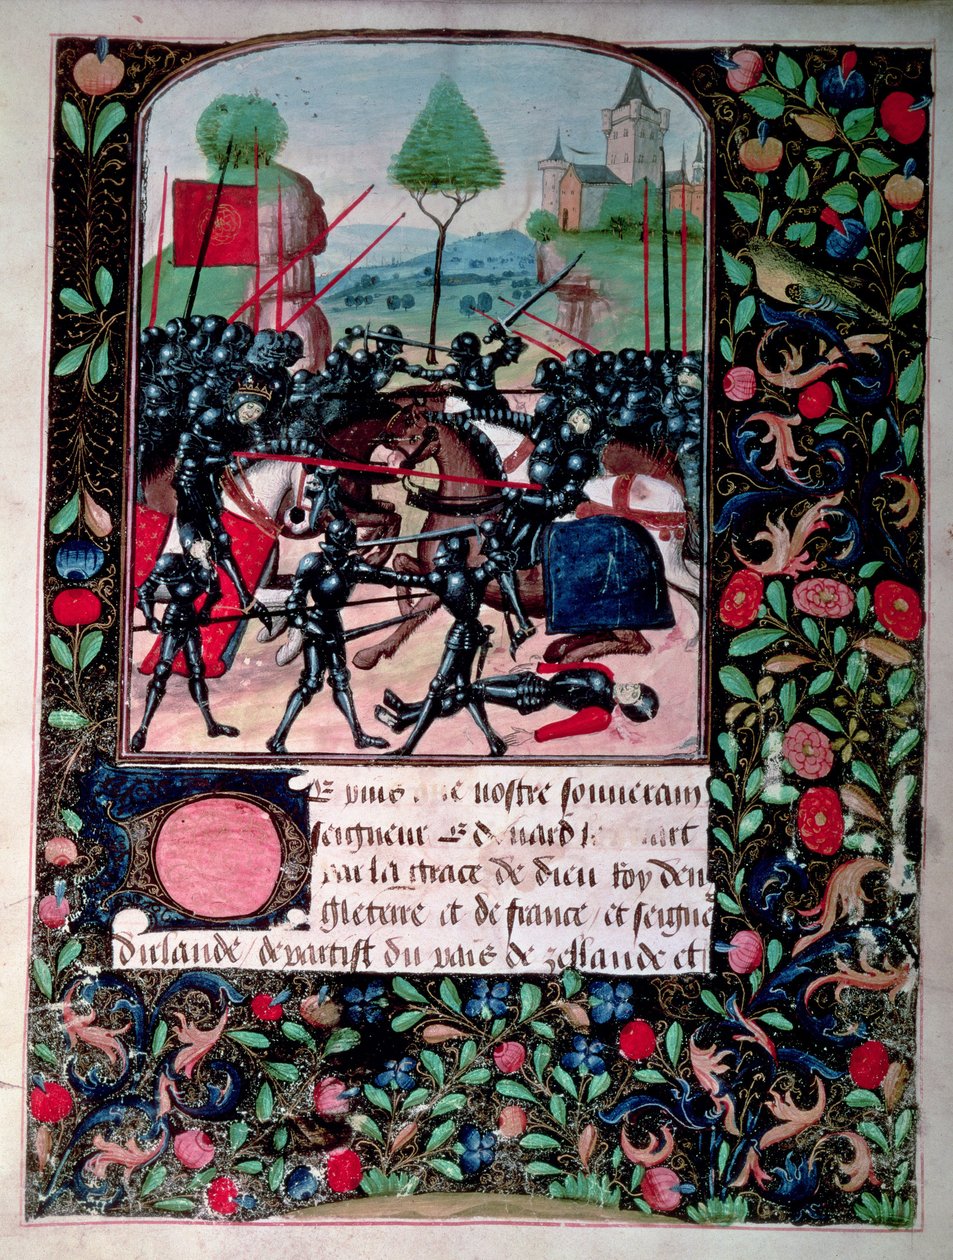 Epuis que nostre souuerain
seigneur Edouard le quart
par la grace de dieu roy den
gleterre et de france / et seigne
dirlande / departist du pais de zellande et